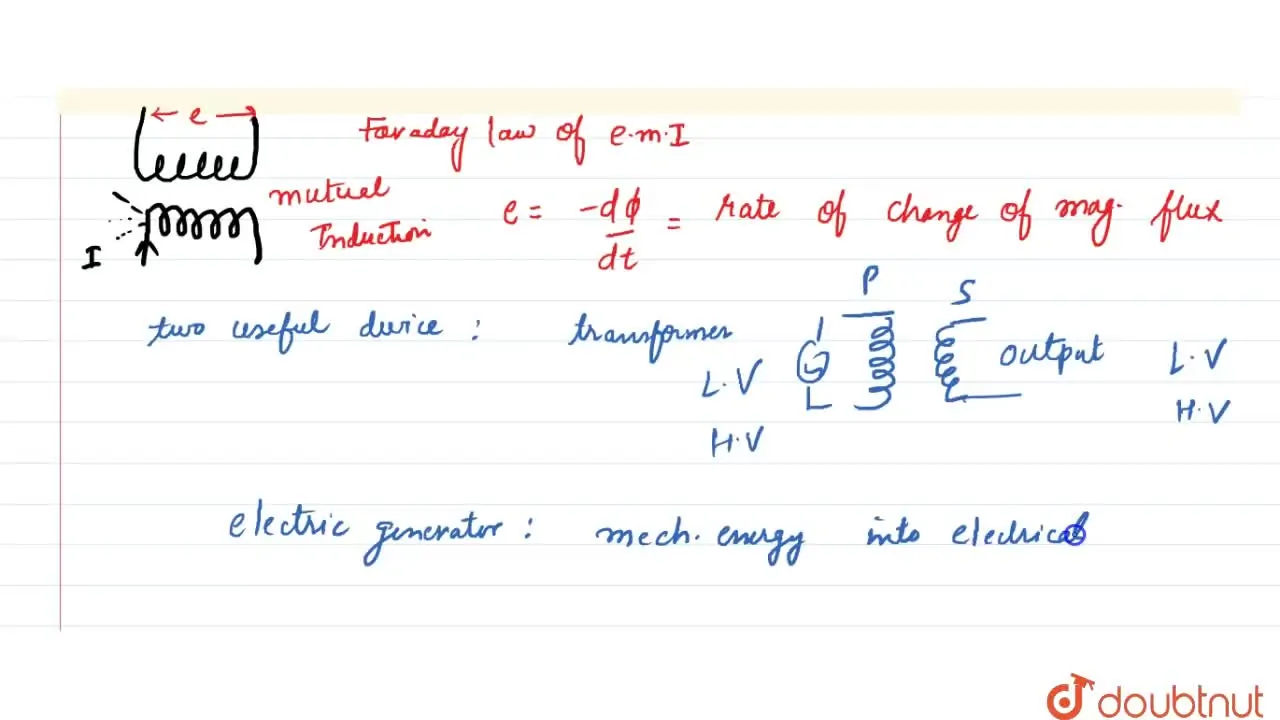 ← e →
Faraday law of e.m.I
mutual
Induction
I
e = -dϕ/dt = rate of change of mag. flux
two useful device : transformer
P S
L.V output L.V
H.V H.V
electric generator : mech. energy into electrical
doubtnut